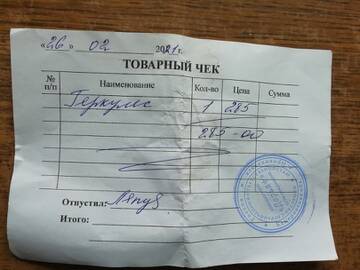 «26» 02 2021г.
ТОВАРНЫЙ ЧЕК
№ п/п Наименование Кол-во Цена Сумма
Геркулес 1 285
285-00
Отпустил:
Итого: